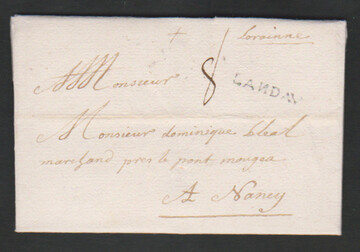 Lorainne
A Monsieur
8
LANDAV
Monsieur dominique bleal
marchand pres le pont mougea
A Nancy